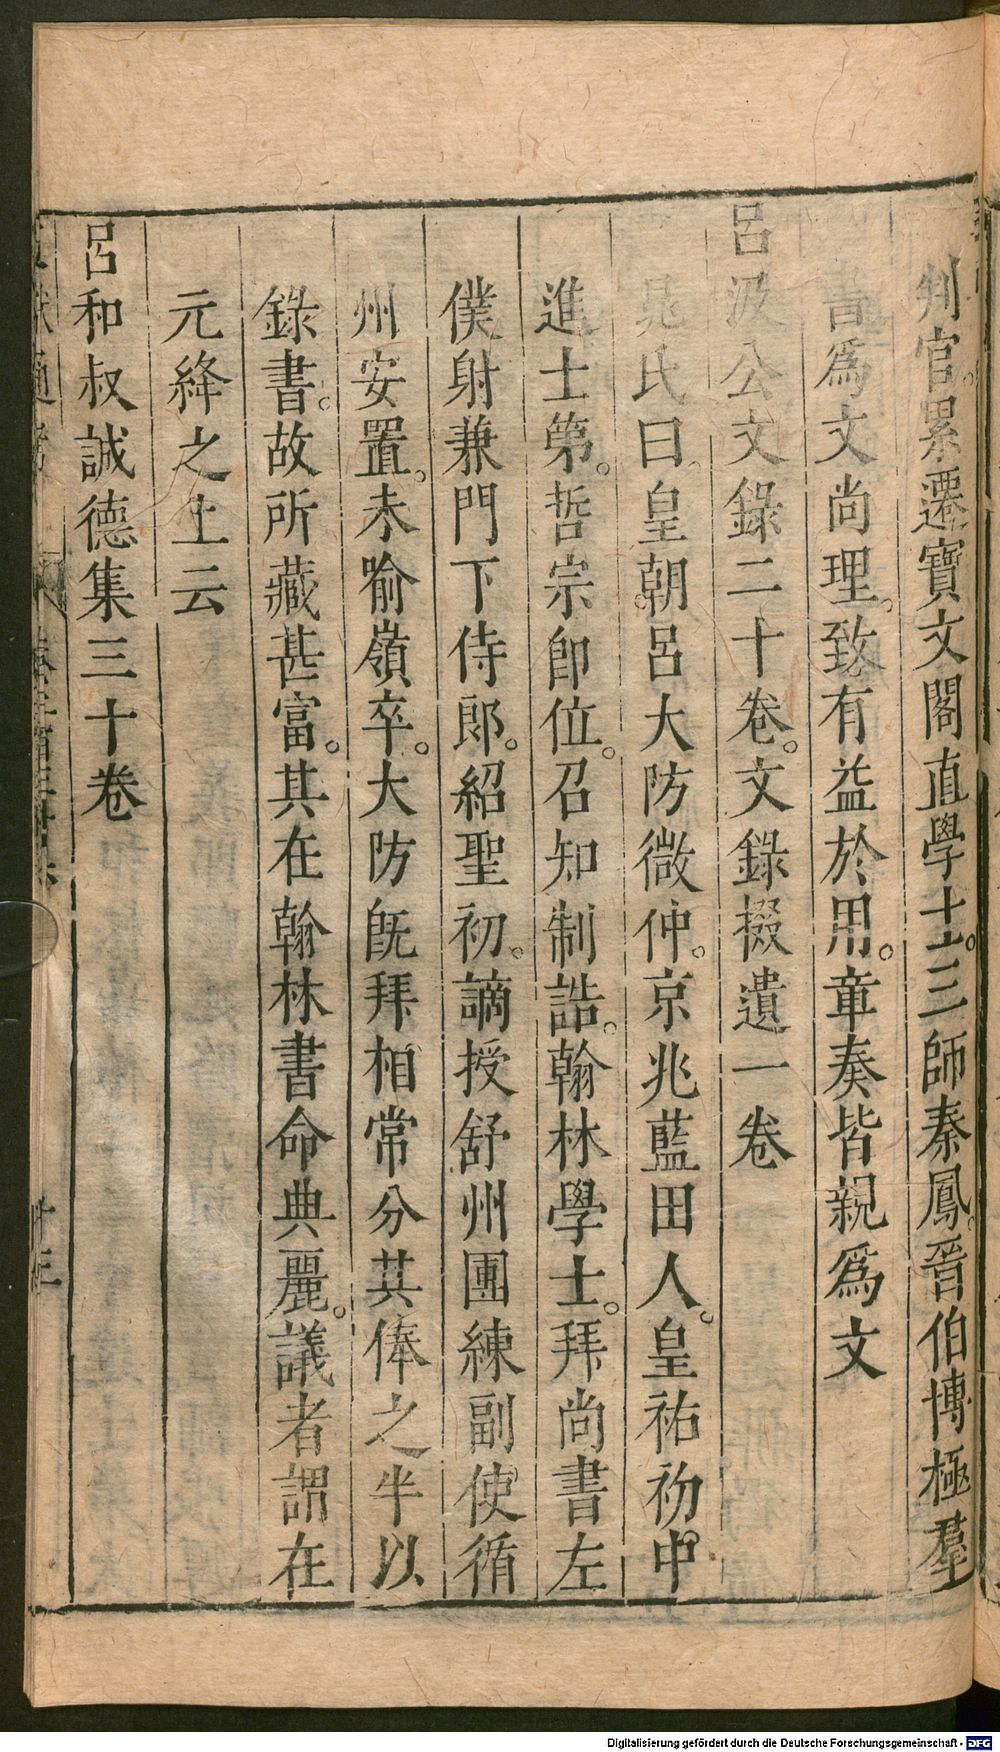 判官。累遷寶文閣直學士。三師秦鳳。晉伯博極羣
書爲文尚理。致有益於用。章奏皆親爲文
呂汲公文錄二十卷。文錄掇遺一卷
晁氏曰。皇朝呂大防微仲。京兆藍田人。皇祐初。中
進士第。哲宗卽位。召知制誥。翰林學士。拜尚書左
僕射兼門下侍郎。紹聖初。謫授舒州團練副使。循
州安置。未喻嶺卒。大防旣拜相。常分其俸之半以
錄書。故所藏甚富。其在翰林書命典麗。議者謂在
元絳之上云
呂和叔誠德集三十卷
十三
Digitalisierung gefördert durch die Deutsche Forschungsgemeinschaft - DFG